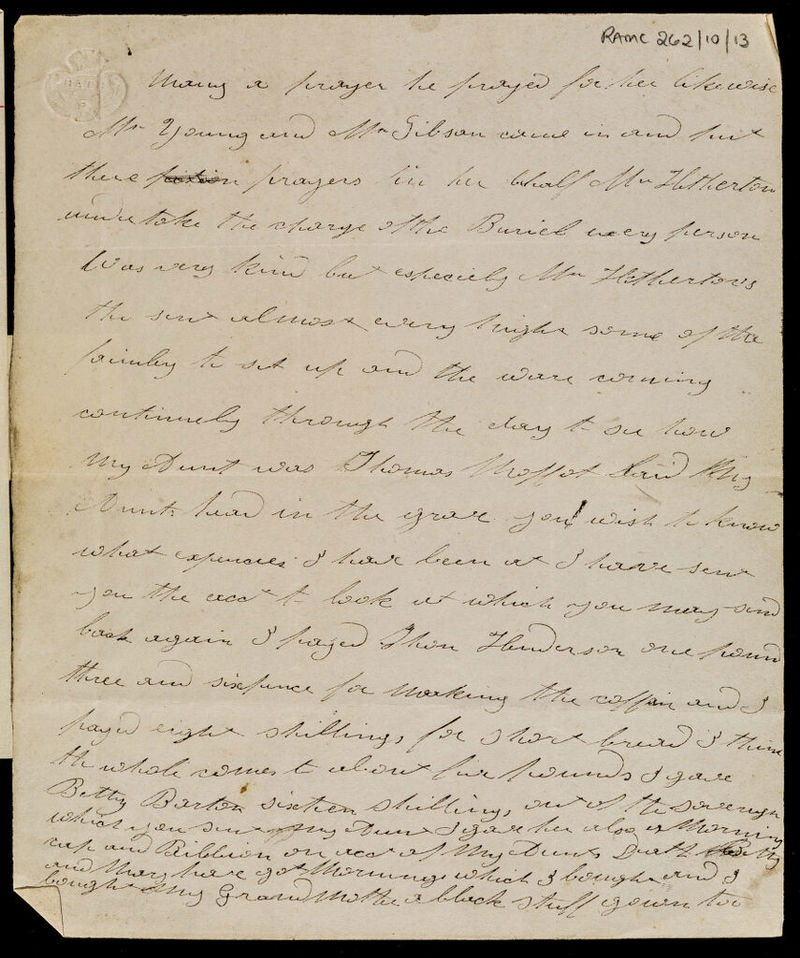 RAMC 262/10/13
BATH
Many a prayer he prayed for her likewise
Mr Young and Mr Gibson came in and put
there prayers in her behalf Mr Hetherton
undertoke the charge of the Buriel every person
Was very kind but especiely Mr Hetherton's
the sent almost every night some of the
faimley to set up and the ware coming
continuely through the day to see how
My Aunt was Thomas Moffat laid My
Aunts head in the grave you wish to know
what expences I have been at I have sent
you the acct to look at which you may send
back again I payed Thon Henderson one pound
three and sixpence for Making the coffin and I
payed eight shillings for short bread I think
the whole comes to about five pounds I gave
Betty Barton sixteen shillings out of the sovereign
which you sent My Aunt I gave her also a Morning
cap and Ribbion on acct of My Aunts Death Betty
and Mary have got Mornings which I bought and I
bought My Grandmother a black stuff gown too